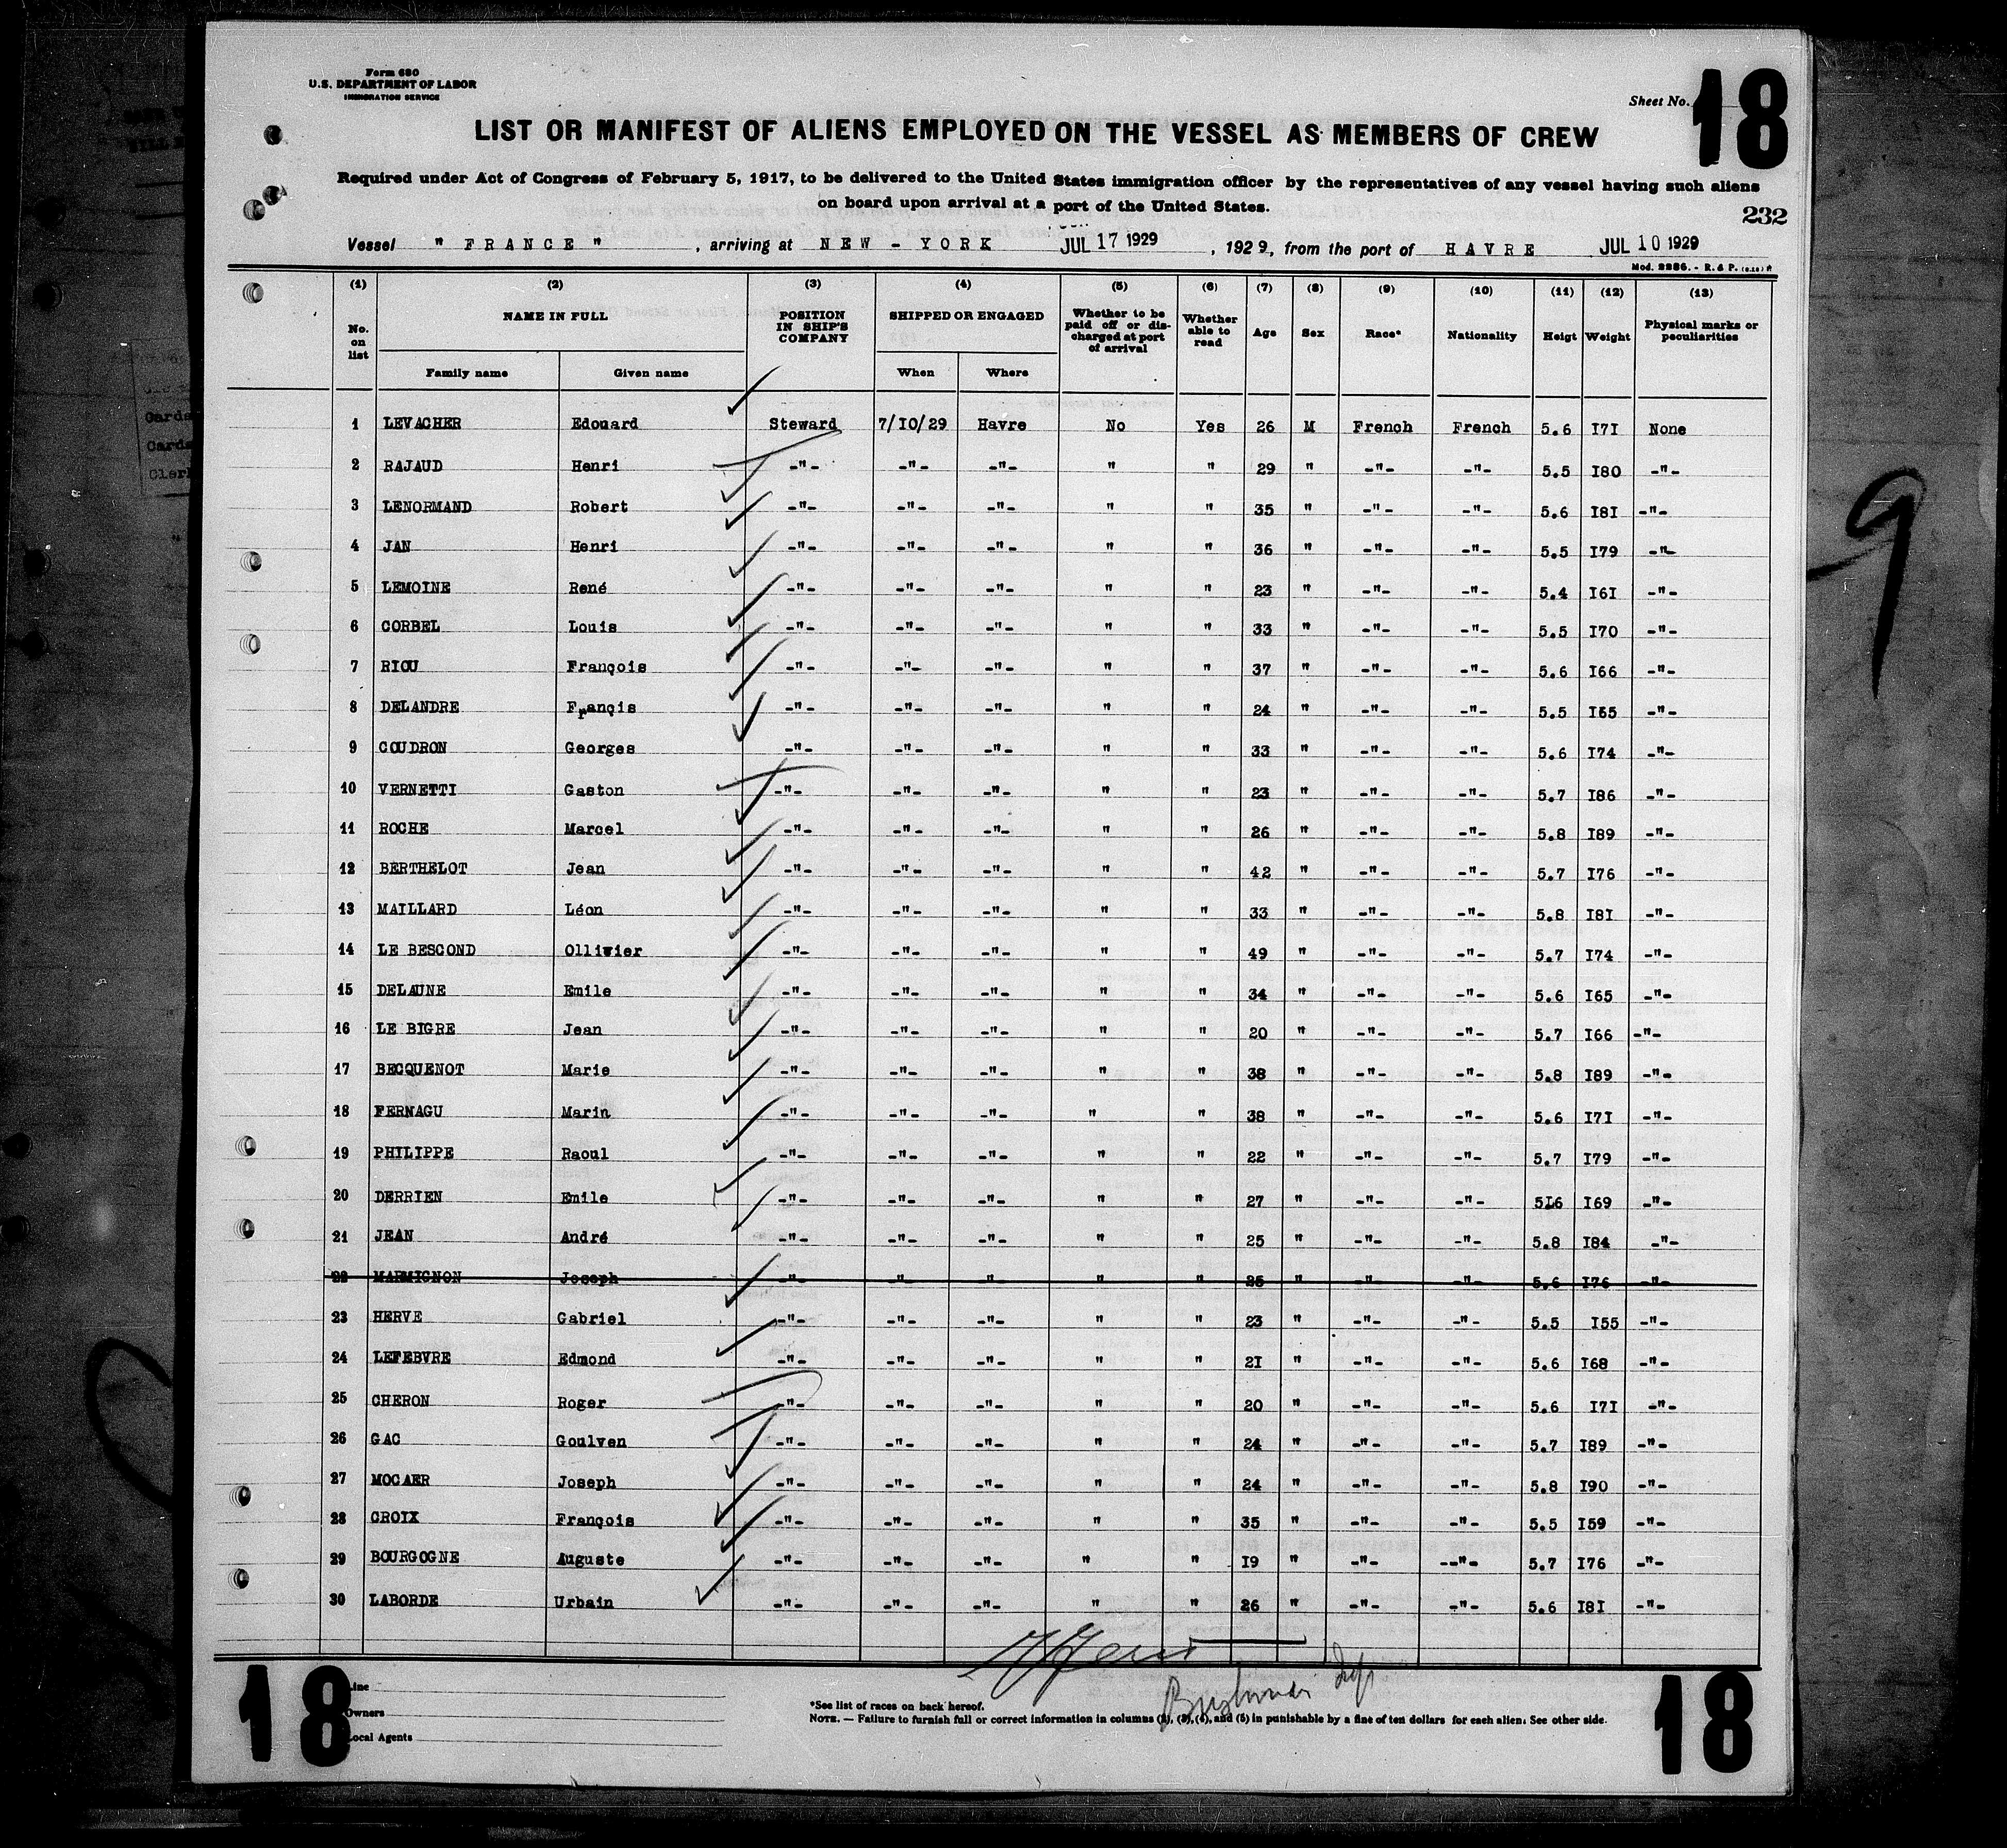 Form 680
U.S. DEPARTMENT OF LABOR
IMMIGRATION SERVICE
Sheet No. 18
LIST OR MANIFEST OF ALIENS EMPLOYED ON THE VESSEL AS MEMBERS OF CREW
Required under Act of Congress of February 5, 1917, to be delivered to the United States immigration officer by the representatives of any vessel having such aliens
on board upon arrival at a port of the United States.
232
Vessel " FRANCE " , arriving at NEW - YORK JUL 17 1929 , 1929, from the port of HAVRE JUL 10 1929
Mod. 2286. - R. & P.
(1) (2) (3) (4) (5) (6) (7) (8) (9) (10) (11) (12) (13)
No. on list NAME IN FULL Family name Given name POSITION IN SHIP'S COMPANY SHIPPED OR ENGAGED When Where Whether to be paid off or discharged at port of arrival Whether able to read Age Sex Race* Nationality Heigt Weight Physical marks or peculiarities
1 LEVACHER Edouard Steward 7/10/29 Havre No Yes 26 M French French 5.6 I7I None
2 RAJAUD Henri -"- -"- -"- " " 29 " -"- -"- 5.5 I80 -"-
3 LENORMAND Robert -"- -"- -"- " " 35 " -"- -"- 5.6 I8I -"-
4 JAN Henri -"- -"- -"- " " 36 " -"- -"- 5.5 I79 -"-
5 LEMOINE René -"- -"- -"- " " 23 " -"- -"- 5.4 I6I -"-
6 CORBEL Louis -"- -"- -"- " " 33 " -"- -"- 5.5 I70 -"-
7 RIOU François -"- -"- -"- " " 37 " -"- -"- 5.6 I66 -"-
8 DELANDRE Françis -"- -"- -"- " " 24 " -"- -"- 5.5 I65 -"-
9 COUDRON Georges -"- -"- -"- " " 33 " -"- -"- 5.6 I74 -"-
10 VERNETTI Gaston -"- -"- -"- " " 23 " -"- -"- 5.7 I86 -"-
11 ROCHE Marcel -"- -"- -"- " " 26 " -"- -"- 5.8 I89 -"-
12 BERTHELOT Jean -"- -"- -"- " " 42 " -"- -"- 5.7 I76 -"-
13 MAILLARD Léon -"- -"- -"- " " 33 " -"- -"- 5.8 I8I -"-
14 LE BESCOND Olliwier -"- -"- -"- " " 49 " -"- -"- 5.7 I74 -"-
15 DELAUNE Emile -"- -"- -"- " " 34 " -"- -"- 5.6 I65 -"-
16 LE BIGRE Jean -"- -"- -"- " " 20 " -"- -"- 5.7 I66 -"-
17 BECQUENOT Marie -"- -"- -"- " " 38 " -"- -"- 5.8 I89 -"-
18 FERNAGU Marin -"- -"- -"- " " 38 " -"- -"- 5.6 I7I -"-
19 PHILIPPE Raoul -"- -"- -"- " " 22 " -"- -"- 5.7 I79 -"-
20 DERRIEN Emile -"- -"- -"- " " 27 " -"- -"- 5L6 I69 -"-
21 JEAN André -"- -"- -"- " " 25 " -"- -"- 5.8 I84 -"-
22 MARMIGNON Joseph -"- -"- -"- " " 25 " -"- -"- 5.6 I76 -"-
23 HERVE Gabriel -"- -"- -"- " " 23 " -"- -"- 5.5 I55 -"-
24 LEFEBVRE Edmond -"- -"- -"- " " 2I " -"- -"- 5.6 I68 -"-
25 CHERON Roger -"- -"- -"- " " 20 " -"- -"- 5.6 I7I -"-
26 GAC Goulven -"- -"- -"- " " 24 " -"- -"- 5.7 I89 -"-
27 MOCAER Joseph -"- -"- -"- " " 24 " -"- -"- 5.8 I90 -"-
28 CROIX François -"- -"- -"- " " 35 " -"- -"- 5.5 I59 -"-
29 BOURGOGNE Auguste -"- -"- -"- " " I9 " -"- -"- 5.7 I76 -"-
30 LABORDE Urbain -"- -"- -"- " " 26 " -"- -"- 5.6 I8I -"-
18
18
Line
Owners
Local Agents
*See list of races on back hereof.
NOTE. — Failure to furnish full or correct information in columns (2), (3), (4), and (5) in punishable by a fine of ten dollars for each alien. See other side.
9